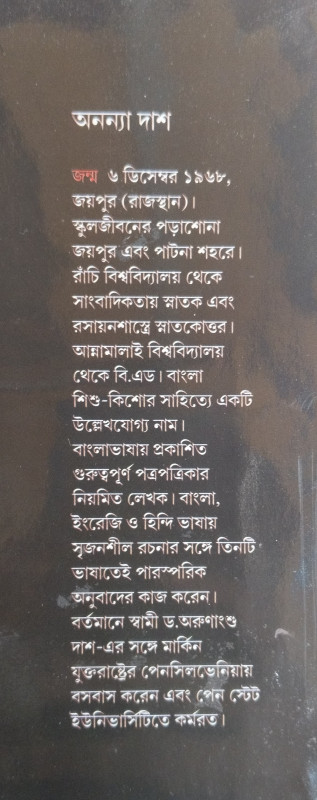 অনন্যা দাশ
জন্ম ৬ ডিসেম্বর ১৯৬৮,
জয়পুর (রাজস্থান)।
স্কুলজীবনের পড়াশোনা
জয়পুর এবং পাটনা শহরে।
রাঁচি বিশ্ববিদ্যালয় থেকে
সাংবাদিকতায় স্নাতক এবং
রসায়নশাস্ত্রে স্নাতকোত্তর।
আন্নামালাই বিশ্ববিদ্যালয়
থেকে বি.এড। বাংলা
শিশু-কিশোর সাহিত্যে একটি
উল্লেখযোগ্য নাম।
বাংলাভাষায় প্রকাশিত
গুরুত্বপূর্ণ পত্রপত্রিকার
নিয়মিত লেখক। বাংলা,
ইংরেজি ও হিন্দি ভাষায়
সৃজনশীল রচনার সঙ্গে তিনটি
ভাষাতেই পারস্পরিক
অনুবাদের কাজ করেন।
বর্তমানে স্বামী ড.অরুণাংশু
দাশ-এর সঙ্গে মার্কিন
যুক্তরাষ্ট্রের পেনসিলভেনিয়ায়
বসবাস করেন এবং পেন স্টেট
ইউনিভার্সিটিতে কর্মরত।